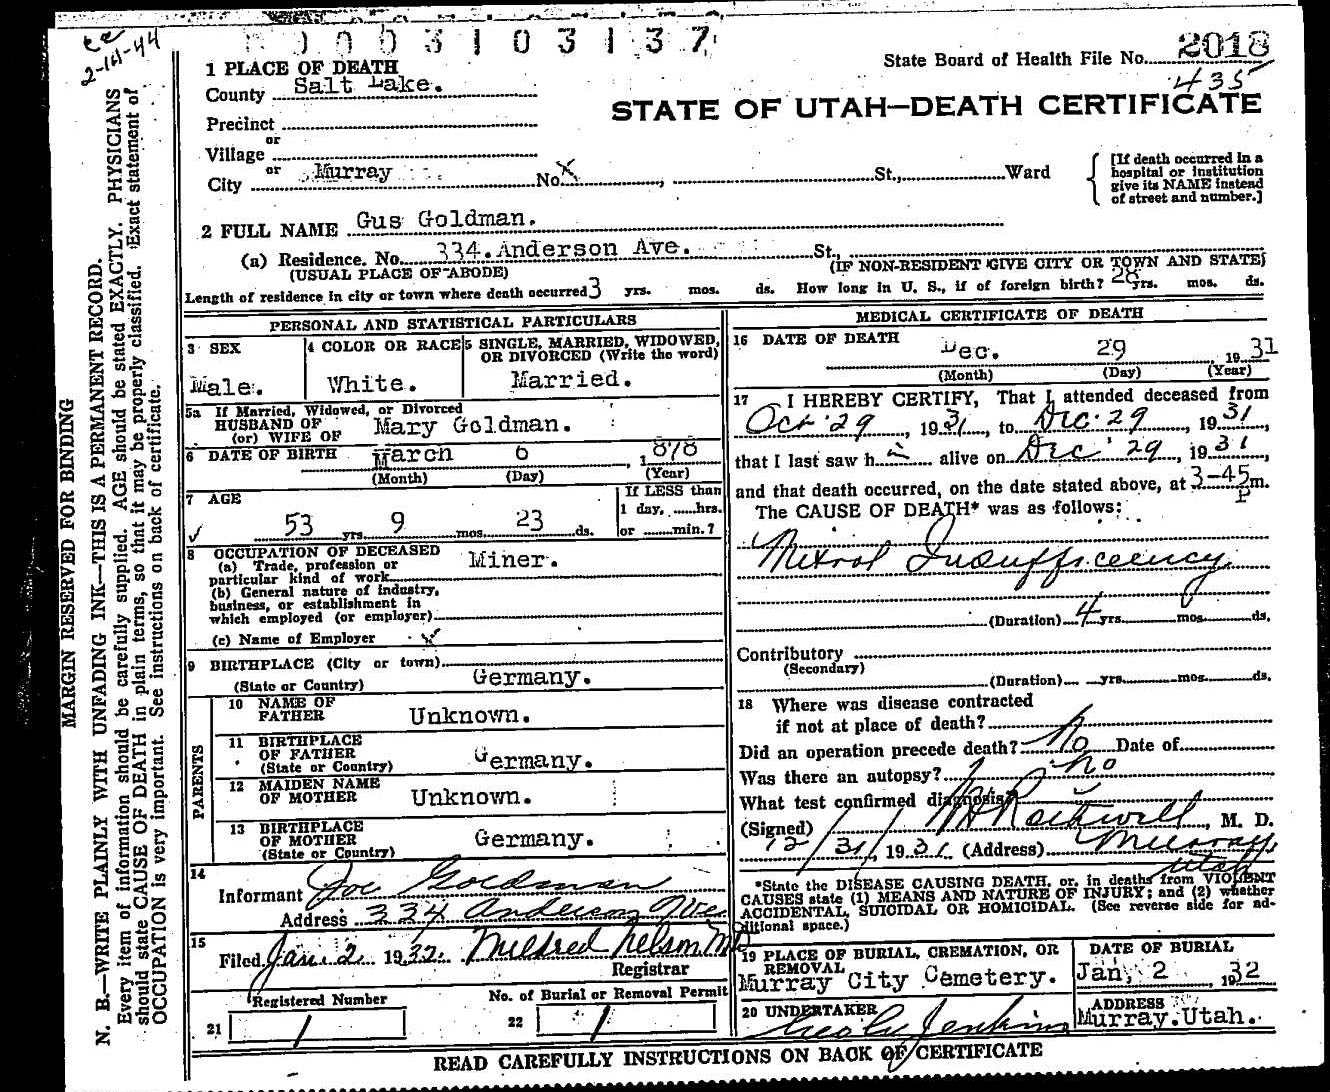 2-14-44
0003103137
State Board of Health File No. 2018
435
1 PLACE OF DEATH
County Salt Lake.
STATE OF UTAH—DEATH CERTIFICATE
Precinct
or
Village
or
City Murray No. X , St., Ward
[If death occurred in a
hospital or institution
give its NAME instead
of street and number.]
2 FULL NAME Gus Goldman.
(a) Residence. No. 334 Anderson Ave. St.,
(USUAL PLACE OF ABODE) (IF NON-RESIDENT GIVE CITY OR TOWN AND STATE)
Length of residence in city or town where death occurred 3 yrs. mos. ds. How long in U. S., if of foreign birth? 28 yrs. mos. ds.
PERSONAL AND STATISTICAL PARTICULARS
3 SEX
Male.
4 COLOR OR RACE
White.
5 SINGLE, MARRIED, WIDOWED,
OR DIVORCED (Write the word)
Married.
5a If Married, Widowed, or Divorced
HUSBAND OF
(or) WIFE OF Mary Goldman.
6 DATE OF BIRTH March 6, 1878
(Month) (Day) (Year)
7 AGE
53 yrs. 9 mos. 23 ds.
If LESS than
1 day, ......hrs.
or ........min.?
8 OCCUPATION OF DECEASED
(a) Trade, profession or
particular kind of work Miner.
(b) General nature of industry,
business, or establishment in
which employed (or employer)
(c) Name of Employer
9 BIRTHPLACE (City or town)
(State or Country) Germany.
PARENTS
10 NAME OF
FATHER Unknown.
11 BIRTHPLACE
OF FATHER
(State or Country) Germany.
12 MAIDEN NAME
OF MOTHER Unknown.
13 BIRTHPLACE
OF MOTHER
(State or Country) Germany.
14
Informant Joe Goldman
Address 334 Anderson Ave
15
Filed Jan. 2 1932. Mildred Nelson
Registrar
Registered Number
21 1
No. of Burial or Removal Permit
22 1
MEDICAL CERTIFICATE OF DEATH
16 DATE OF DEATH
Dec. 29, 1931
(Month) (Day) (Year)
17 I HEREBY CERTIFY, That I attended deceased from
Oct 29, 1931, to Dec 29, 1931,
that I last saw h alive on Dec 29, 1931,
and that death occurred, on the date stated above, at 3-45 P m.
The CAUSE OF DEATH* was as follows:
Mitral Insufficeency
(Duration) 4 yrs. mos. ds.
Contributory
(Secondary)
(Duration) yrs. mos. ds.
18 Where was disease contracted
if not at place of death?
Did an operation precede death? No Date of
Was there an autopsy? no
What test confirmed diagnosis?
(Signed) Rothwell, M. D.
12/31, 1931 (Address) Murray
Utah
*State the DISEASE CAUSING DEATH, or, in deaths from VIOLENT
CAUSES state (1) MEANS AND NATURE OF INJURY; and (2) whether
ACCIDENTAL, SUICIDAL OR HOMICIDAL. (See reverse side for ad-
ditional space.)
19 PLACE OF BURIAL, CREMATION, OR
REMOVAL
Murray City Cemetery.
DATE OF BURIAL
Jan, 2 1932
20 UNDERTAKER
Jenkins
ADDRESS
Murray.Utah.
READ CAREFULLY INSTRUCTIONS ON BACK OF CERTIFICATE
MARGIN RESERVED FOR BINDING
N. B.—WRITE PLAINLY WITH UNFADING INK—THIS IS A PERMANENT RECORD.
Every item of information should be carefully supplied. AGE should be stated EXACTLY. PHYSICIANS
should state CAUSE OF DEATH in plain terms, so that it may be properly classified. Exact statement of
OCCUPATION is very important. See instructions on back of certificate.